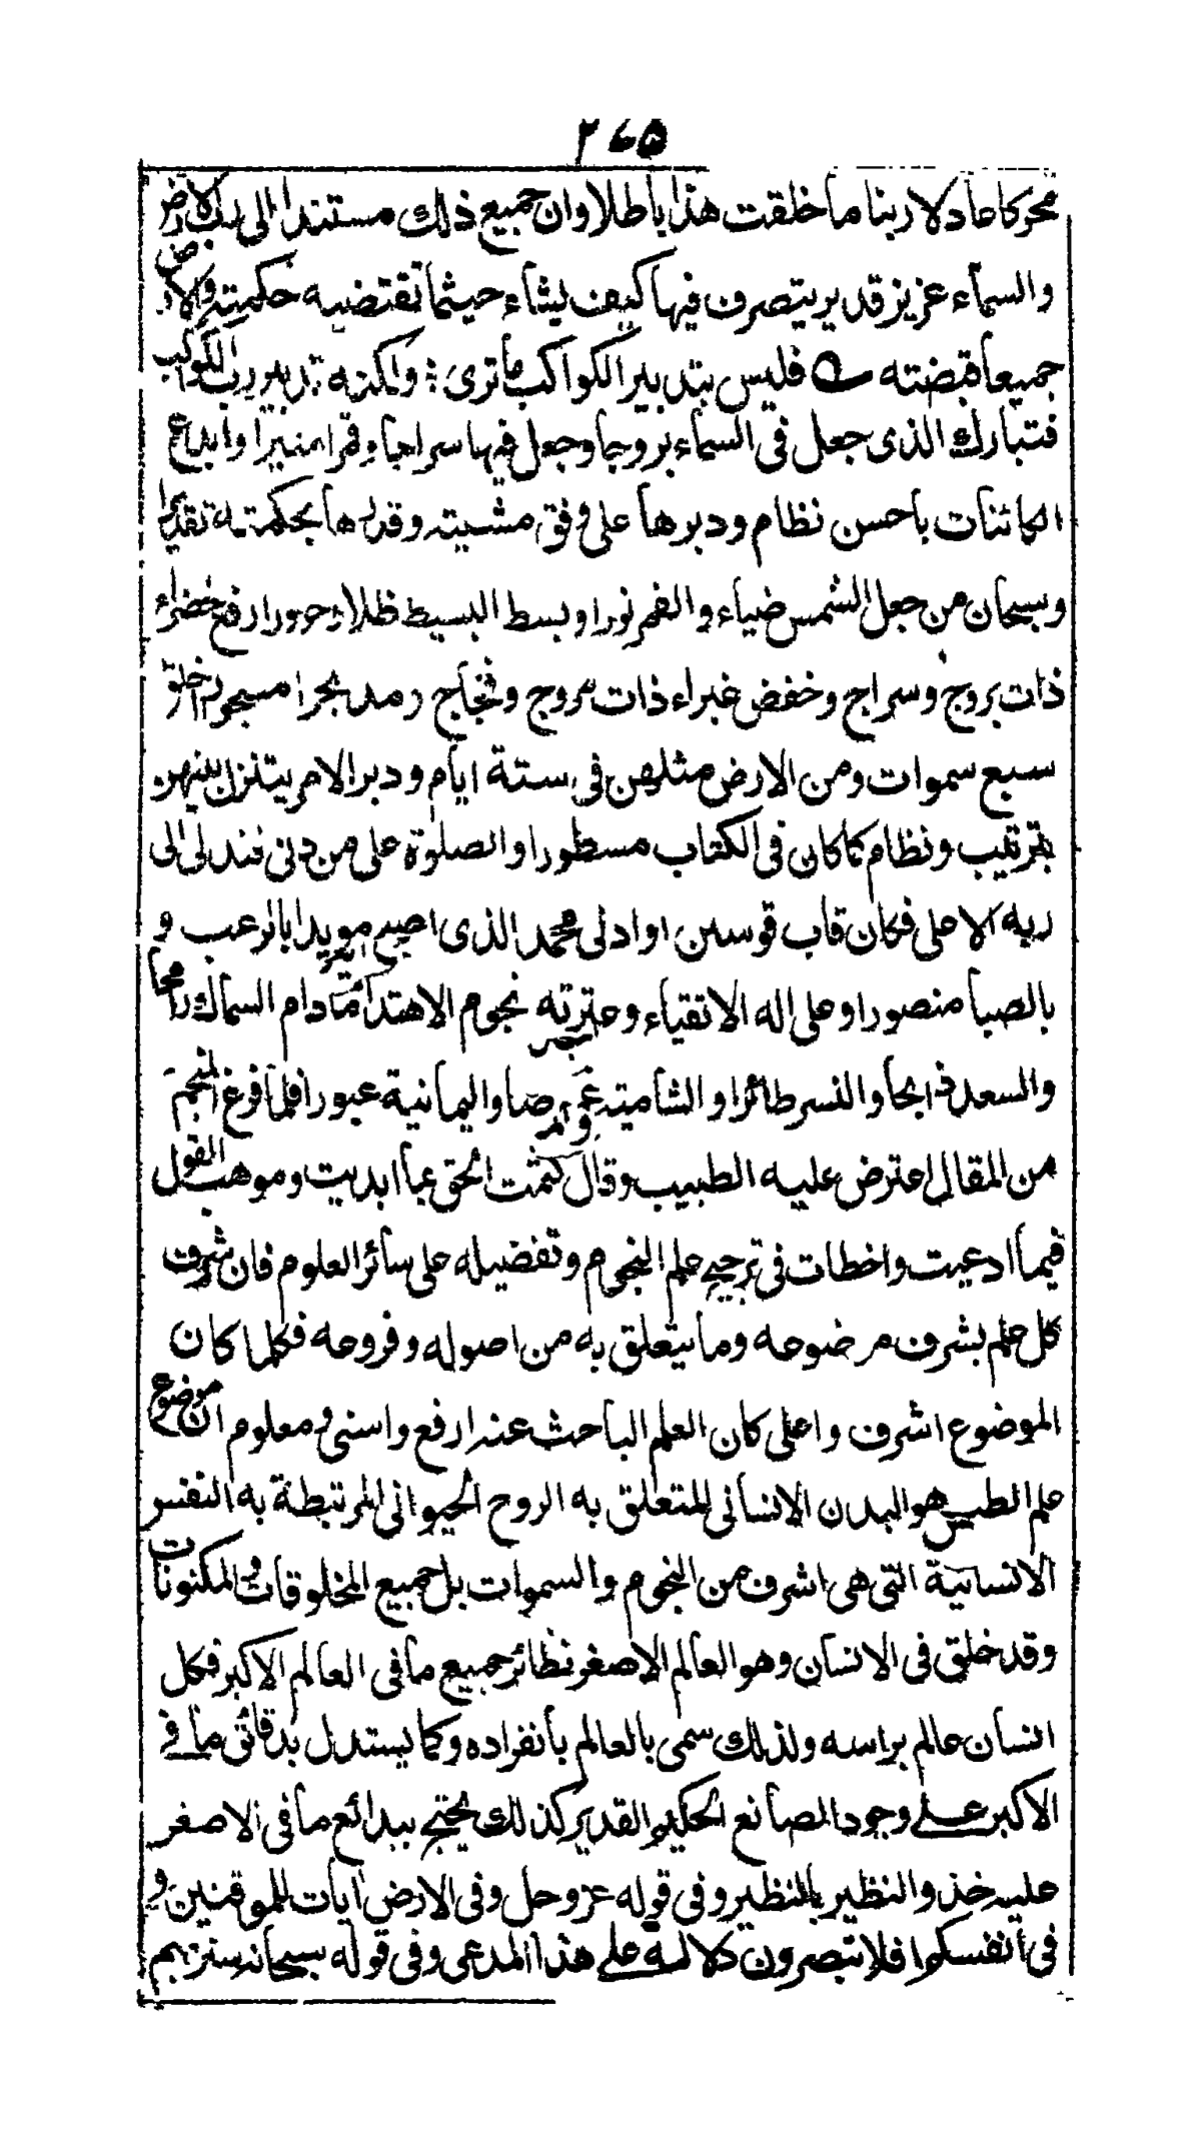 ٢٦٥
محركا عادلا ربنا ما خلقت هذا باطلا وان جميع ذلك مستندا الى رب الارض
والسماء عزيز قدير يتصرف فيها كيف يشاء حيثما تقتضيه حكمته والارض
جميعا قبضته فليس بتدبير الكواكب ما ترى ؛ ولكنه تدبير رب الكواكب
فتبارك الذى جعل فى السماء بروجا وجعل فيها سراجا وقمرا منيرا وابداع
الكائنات باحسن نظام ودبرها على وفق مشيته وقدرها بحكمته تقديرا
وسبحان من جعل الشمس ضياء والقمر نورا وبسط البسيط ظلا وحرورا رفع خضراء
ذات بروج وسراج وخفض غبراء ذات مروج وفجاج ومد بحرا مسجورا خلق
سبع سموات ومن الارض مثلهن فى ستة ايام ودبر الامر يتنزل بينهن
بترتيب ونظام كما كان فى الكتاب مسطورا والصلوة على من دنى فتدلى الى
ربه الاعلى فكان قاب قوسين او ادنى محمد الذى اصبح مويدا بالرعب و
بالصبا منصورا وعلى اله الاتقياء وعترته نجوم الاهتداء ما دام السماك رامحا
والسعد ذابحا والنسر طائرا والشامية غميصا واليمانية عبورا فلما فرغ المنجم
من المقال اعترض عليه الطبيب وقال كتمت الحق عما ابديت وموهت القول
فيما ادعيت واخطات فى ترجيح علم النجوم وتفضيله على سائر العلوم فان شرف
كل علم بشرف موضوعه وما يتعلق به من اصوله وفروعه فكلما كان
الموضوع اشرف واعلى كان العلم الباحث عنه ارفع واسنى ومعلوم ان موضوع
علم الطب هو البدن الانسانى المتعلق به الروح الحيوانى المرتبطة به النفس
الانسانية التى هى اشرف من النجوم والسموات بل جميع المخلوقات والمكنونات
وقد خلق فى الانسان وهو العالم الاصغر نظائر جميع ما فى العالم الاكبر فكل
انسان عالم براسه ولذلك سمى بالعالم بانفراده وكما يستدل بدقائق ما فى
الاكبر على وجود الصانع الحكيم القدير كذلك يحتج ببدائع ما فى الاصغر
عليه خذ والنظير بالنظير وفى قوله عز وجل وفى الارض ايات للموقنين و
فى انفسكم افلا تبصرون دلالة على هذا المدعى وفى قوله سبحانه سنريهم